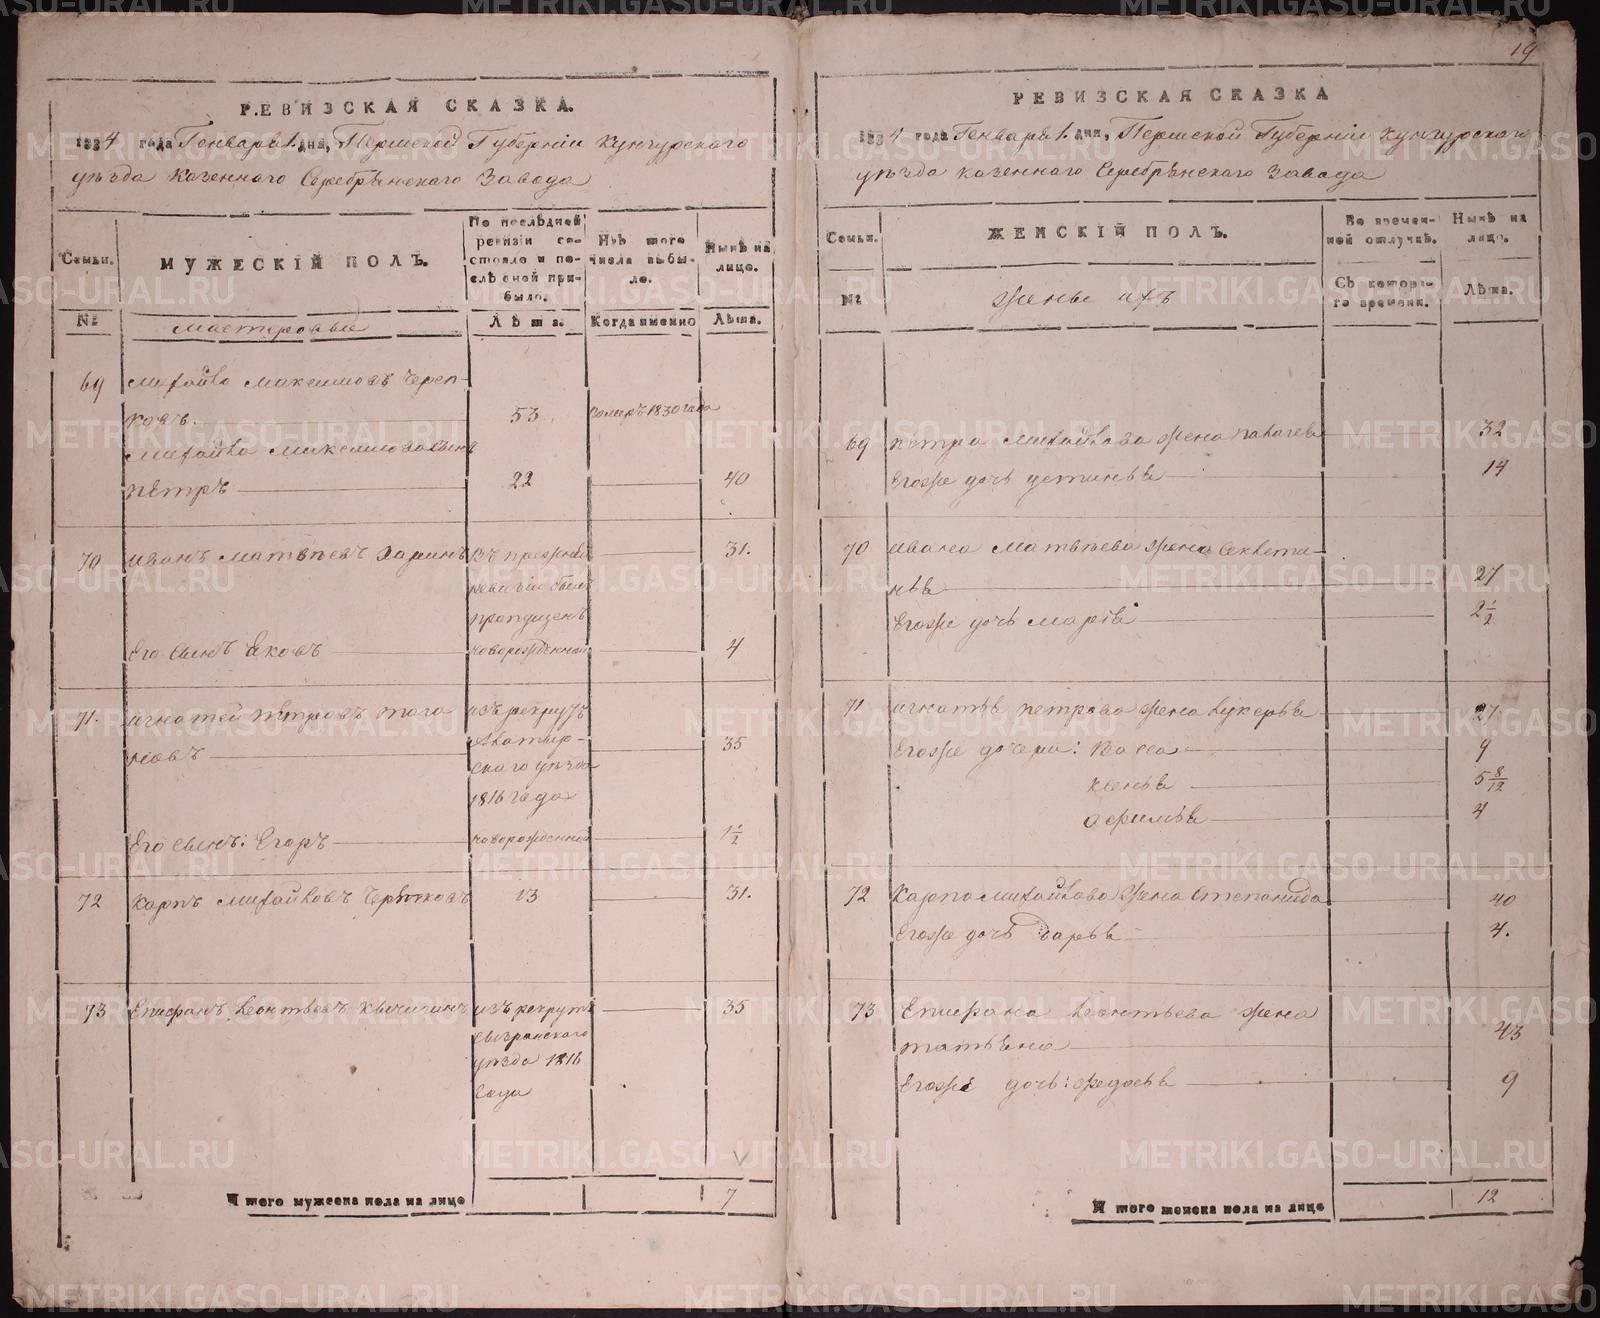 19
РЕВИЗСКАЯ СКАЗКА.
1834 года Генваря 1. дня, Пермской Губернiи Кунгурского
уѣзда казенного Серебрянского Завода
Семьи.
МУЖЕСКІЙ ПОЛЪ.
По послѣдней ревизіи состояло и послѣ оной прибыло.
Изъ того числа выбыло.
Нынѣ на лицо.
№
Мастеровые
Лѣта.
Когда именно
Лѣта.
69 Михайло Максимовъ Череп-
ковъ. 53. Помиръ 1830 года
Михайло Максимова сынъ
Пётръ 22 40
70 Иванъ Матвѣевъ Харинъ Въ прежней 31.
ревизіи былъ
пропущенъ
Его сынъ Яковъ новорожденной 4
71. Игнатей Пётровъ
изъ рекрутъ
35
ского уѣзда
1816 года
Его сынъ: Егоръ новорожденной 1 1/2
72 Карпъ Михайловъ Черепковъ 13 31.
73 Епифанъ Леонтьевъ изъ рекрутъ 35
сызранского
уѣзда 1816
года
Итого мужеска пола на лицо 7
РЕВИЗСКАЯ СКАЗКА
1834 года Генваря 1. дня, Пермской Губернiи Кунгурского
уѣзда казенного Серебрянского Завода
Семьи.
ЖЕНСКІЙ ПОЛЪ.
Во временной отлучкѣ.
Нынѣ на лицо.
№
Жены ихъ
Съ котораго времени.
Лѣта.
69 Пётра Михайлова жена 32
Егоже дочь Устинья 14
70 Ивана Матвѣева жена Секлети-
нья 27
Егоже дочь Марія 2 1/2
71 Игнатья Петрова жена Лукерья 27
Егоже дочери: Васса 9
Ксенья 5 8/12
Афимья 4
72 Карпа Михайлова жена Степанида 40
Егоже дочь Дарья 4.
73 Епифана Леонтьева жена
Татьяна 43
Егоже дочь: Федосья 9
Итого женска пола на лицо 12
METRIKI.GASO-URAL.RU